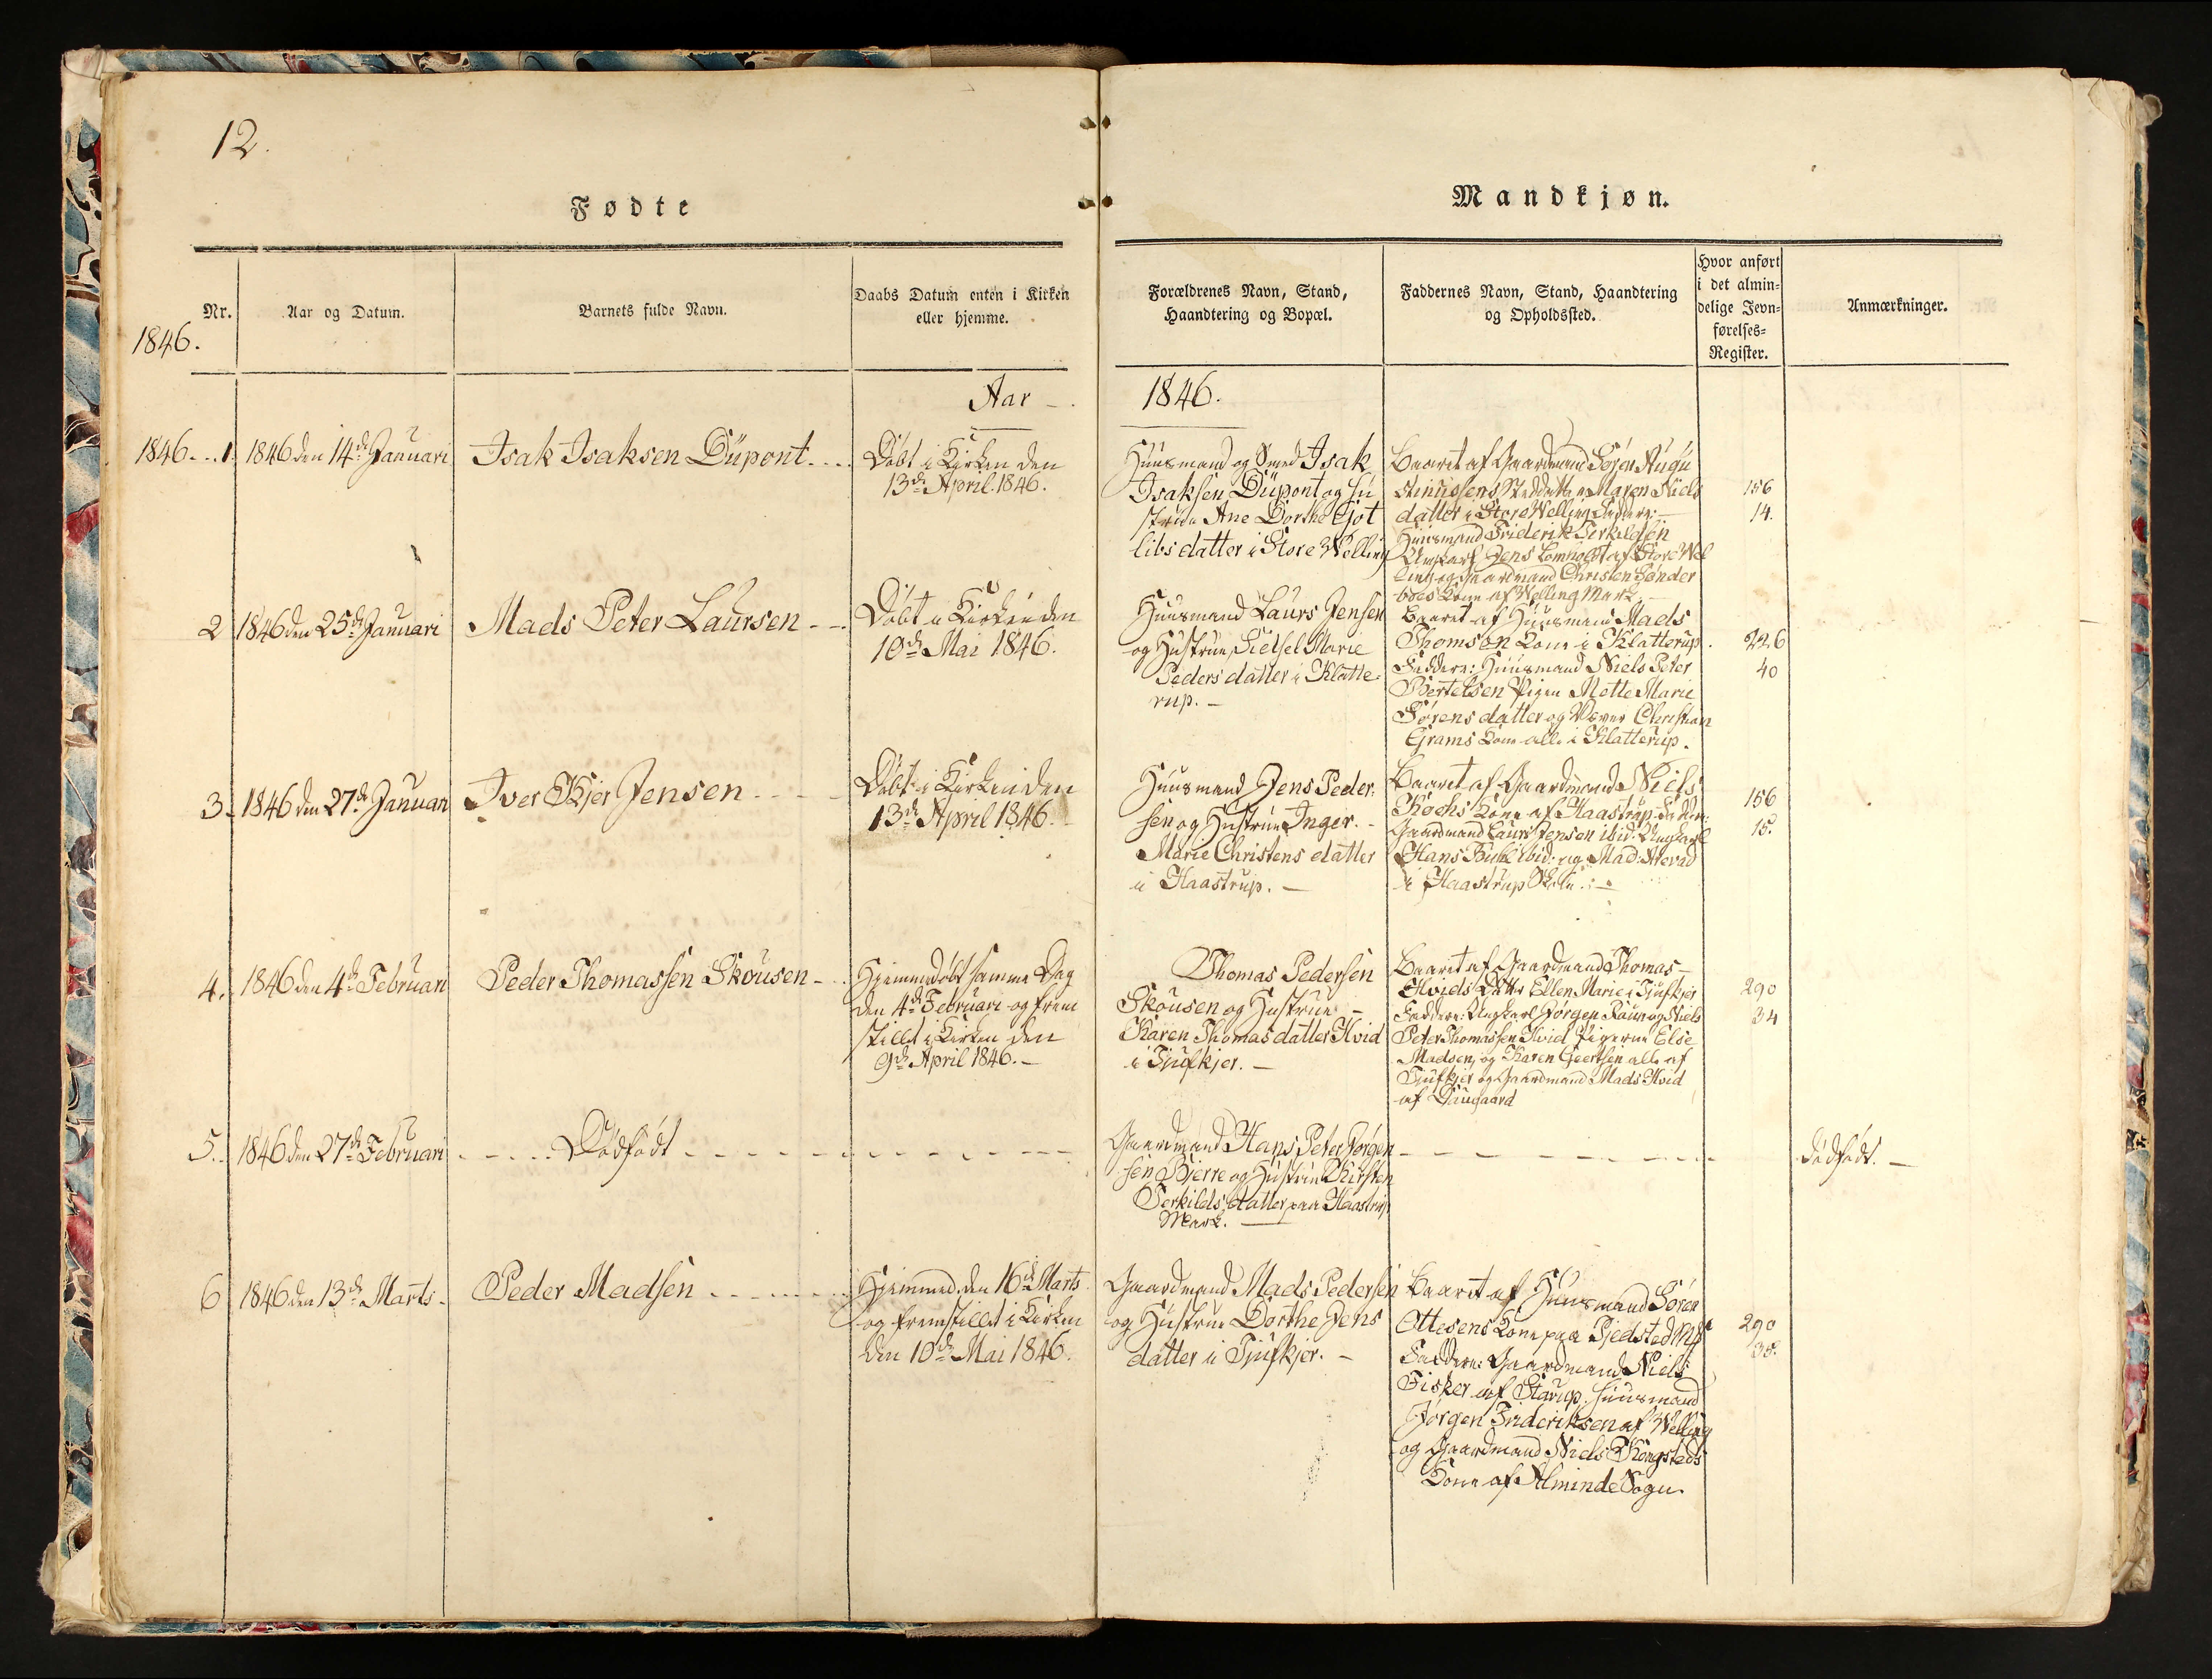 12.
Fødte
Mandkjøn.
Nr.
Aar og Datum.
Barnets fulde Navn.
Daabs Datum enten i Kirken
eller hjemme.
Forældrenes Navn, Stand,
Haandtering og Bopæl.
Faddernes Navn, Stand, Haandtering
og Opholdssted.
Hvor anført
i det almin-
delige Jevn-
førelses-
Register.
Anmærkninger.
1846.
Aar -
1846.
1846. . . 1.
1846 den 14de Januari
Isak Isaksen Düpont. . .
Døbt i Kirken den
13de April. 1846.
Huusmand og Smed Isak
Isaksen Düpont og Hu
strue Ane Dorthe Got
libsdatter i Store Welling
Baaret af Gaardmand Søren Augu
stinussens Steddatter Maren Niels
datter i Store Welling Faddere:
Huusmand Friderik Terkildsen
Ungkarl Jens Lomholdt af Store Wel
ling og Gaardmand Christen Sønder
bØes Kone af Welling Mark.
156
14.
2
1846 den 25de Januari
Mads Peter Laursen - -
Døbt i Kirken den
10de Mai 1846.
Huusmand Laurs Jensen
og Hustrue Sidsel Marie
Pedersdatter i Klatte-
rup. -
Baaret af Huusmand Mads
Thomsen Kone i Klatterup.
Faddere: Huusmand Niels Peter
Bertelsen Pigen Mette Marie
Sørensdatter og Væver Christian
Grams Kone alle i Klatterup.
226
40
3.
1846 den 27de Januari
Iver Kjer Jensen - - -
Døbt i Kirken den
13de April 1846.
Huusmand Jens Peder-
sen og Hustrue Inger -
Marie Christensdatter
i Haastrup. -
Baaret af Gaardmand Niels
Kochs Kone af Haastrup Faddere:
Gaardmand Laurs Jensen ibid: Ungkarl
Hans Buhl ibid: og Mad:
i Haastrup Skole. -
156
15.
4.
1846 den 4de Februari
Peder Thomassen Skousen - .
Hjemmedøbt samme Dag
den 4de Februari og frem
stillet i Kirken den
9de April 1846. -
Thomas Pedersen
Skousen og Hustrue -
Karen Thomasdatter Hvid
i Tjufkjer. -
Baaret af Gaardmand Thomas -
Hvids Datter Ellen Marie i Tjufkjer
Faddere: Ungkarl Jørgen Raun og Niels
Peter Thomassen Hvid Pigerne Else
Madsen, og Karen Geertsen alle af
Tjufkjer og Gaardmand Mads Hvid
af Daugaard
290
34
5.
1846 den 27de Februari
- - - . . Dødfødt - - - - - - - - - -
Gaardmand Hans Peter Jørgen-
sen Bjerre og Hustrue Kirsten
Terkildsdatter paa Haastrup
Mark.
- - - - - - - - -
dødfødt. -
6
1846 den 13de Marts.
Peder Madsen . . . . . . .
Hjemmed. den 16de Marts
og fremstillet i Kirken
den 10de Mai 1846.
Gaardmand Mads Pedersen
og Hustrue Dorthe Jens
datter i Tjufkjer. -
Baaret af Huusmand Søren
Ottesens Kone paa Pjedsted Mk
Faddere: Gaardmand Niels
Fisker af Starup, Huusmand
Jørgen Frideriksen af Welling
og Gaardmand Niels Kongsteds
Kone af Alminde Sogn.
290
35.